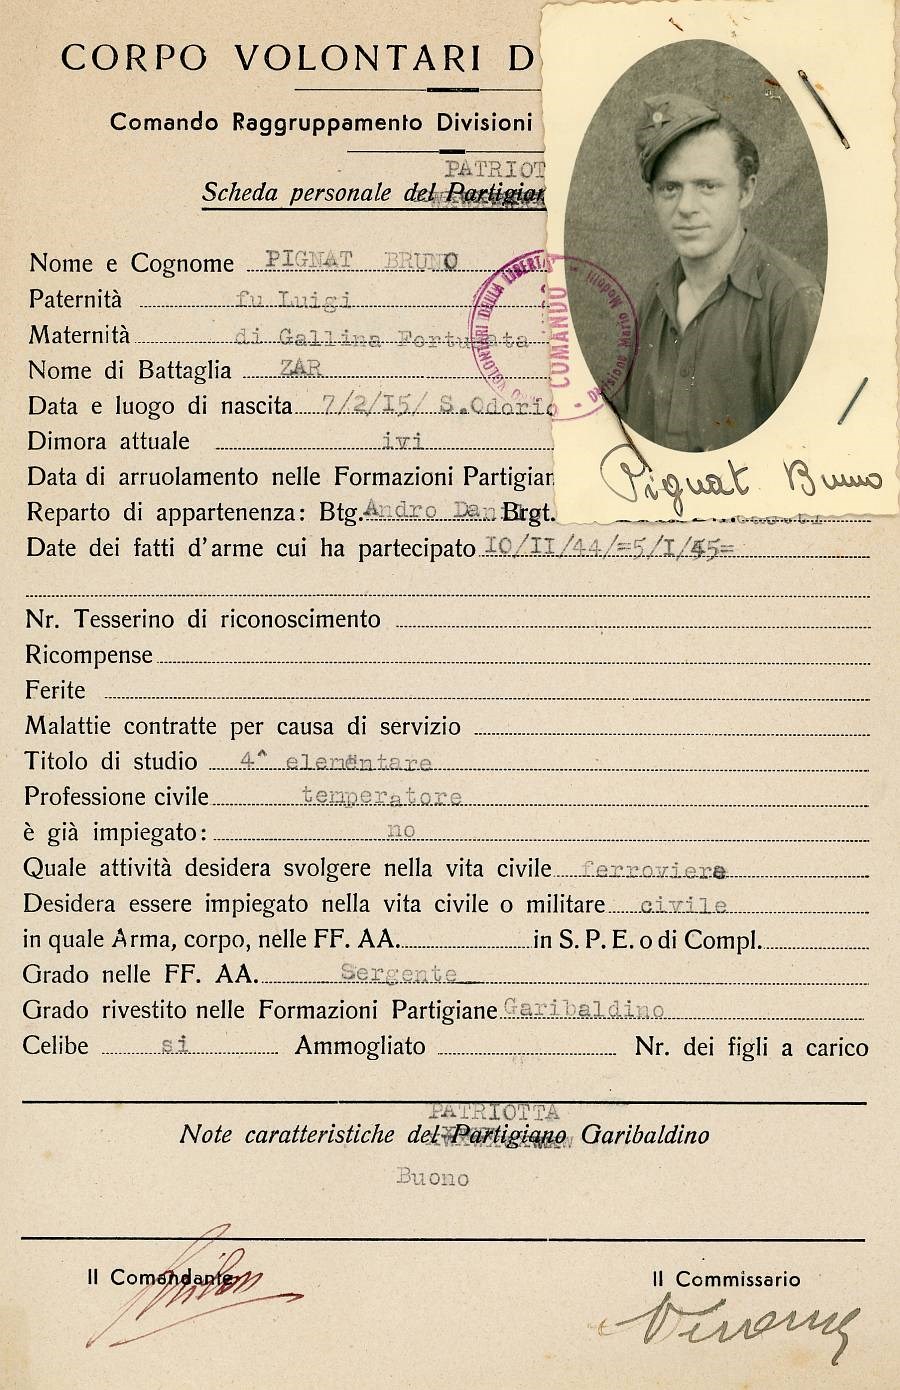 CORPO VOLONTARI D
Comando Raggruppamento Divisioni
PATRIOT
Scheda personale del Partigian
Nome e Cognome PIGNAT BRUNO
Paternità fu Luigi
Maternità di Gallina Fortunata
Nome di Battaglia ZAR
Data e luogo di nascita 7/2/I5/ S.Odoric
Dimora attuale ivi
Data di arruolamento nelle Formazioni Partigian
Reparto di appartenenza: Btg. Andro Dani Brgt.
Date dei fatti d'arme cui ha partecipato IO/II/44/=5/I/45=
Nr. Tesserino di riconoscimento
Ricompense
Ferite
Malattie contratte per causa di servizio
Titolo di studio 4^ elementare
Professione civile temperatore
è già impiegato: no
Quale attività desidera svolgere nella vita civile ferroviere
Desidera essere impiegato nella vita civile o militare civile
in quale Arma, corpo, nelle FF. AA. in S. P. E. o di Compl.
Grado nelle FF. AA. Sergente
Grado rivestito nelle Formazioni Partigiane Garibaldino
Celibe si Ammogliato Nr. dei figli a carico
PATRIOTTA
Note caratteristiche del Partigiano Garibaldino
Buono
Il Comandante
Il Commissario
Pignat Bruno
VOLONTARI DELLA LIBERTA
COMANDO
Divisione Mario Modotti